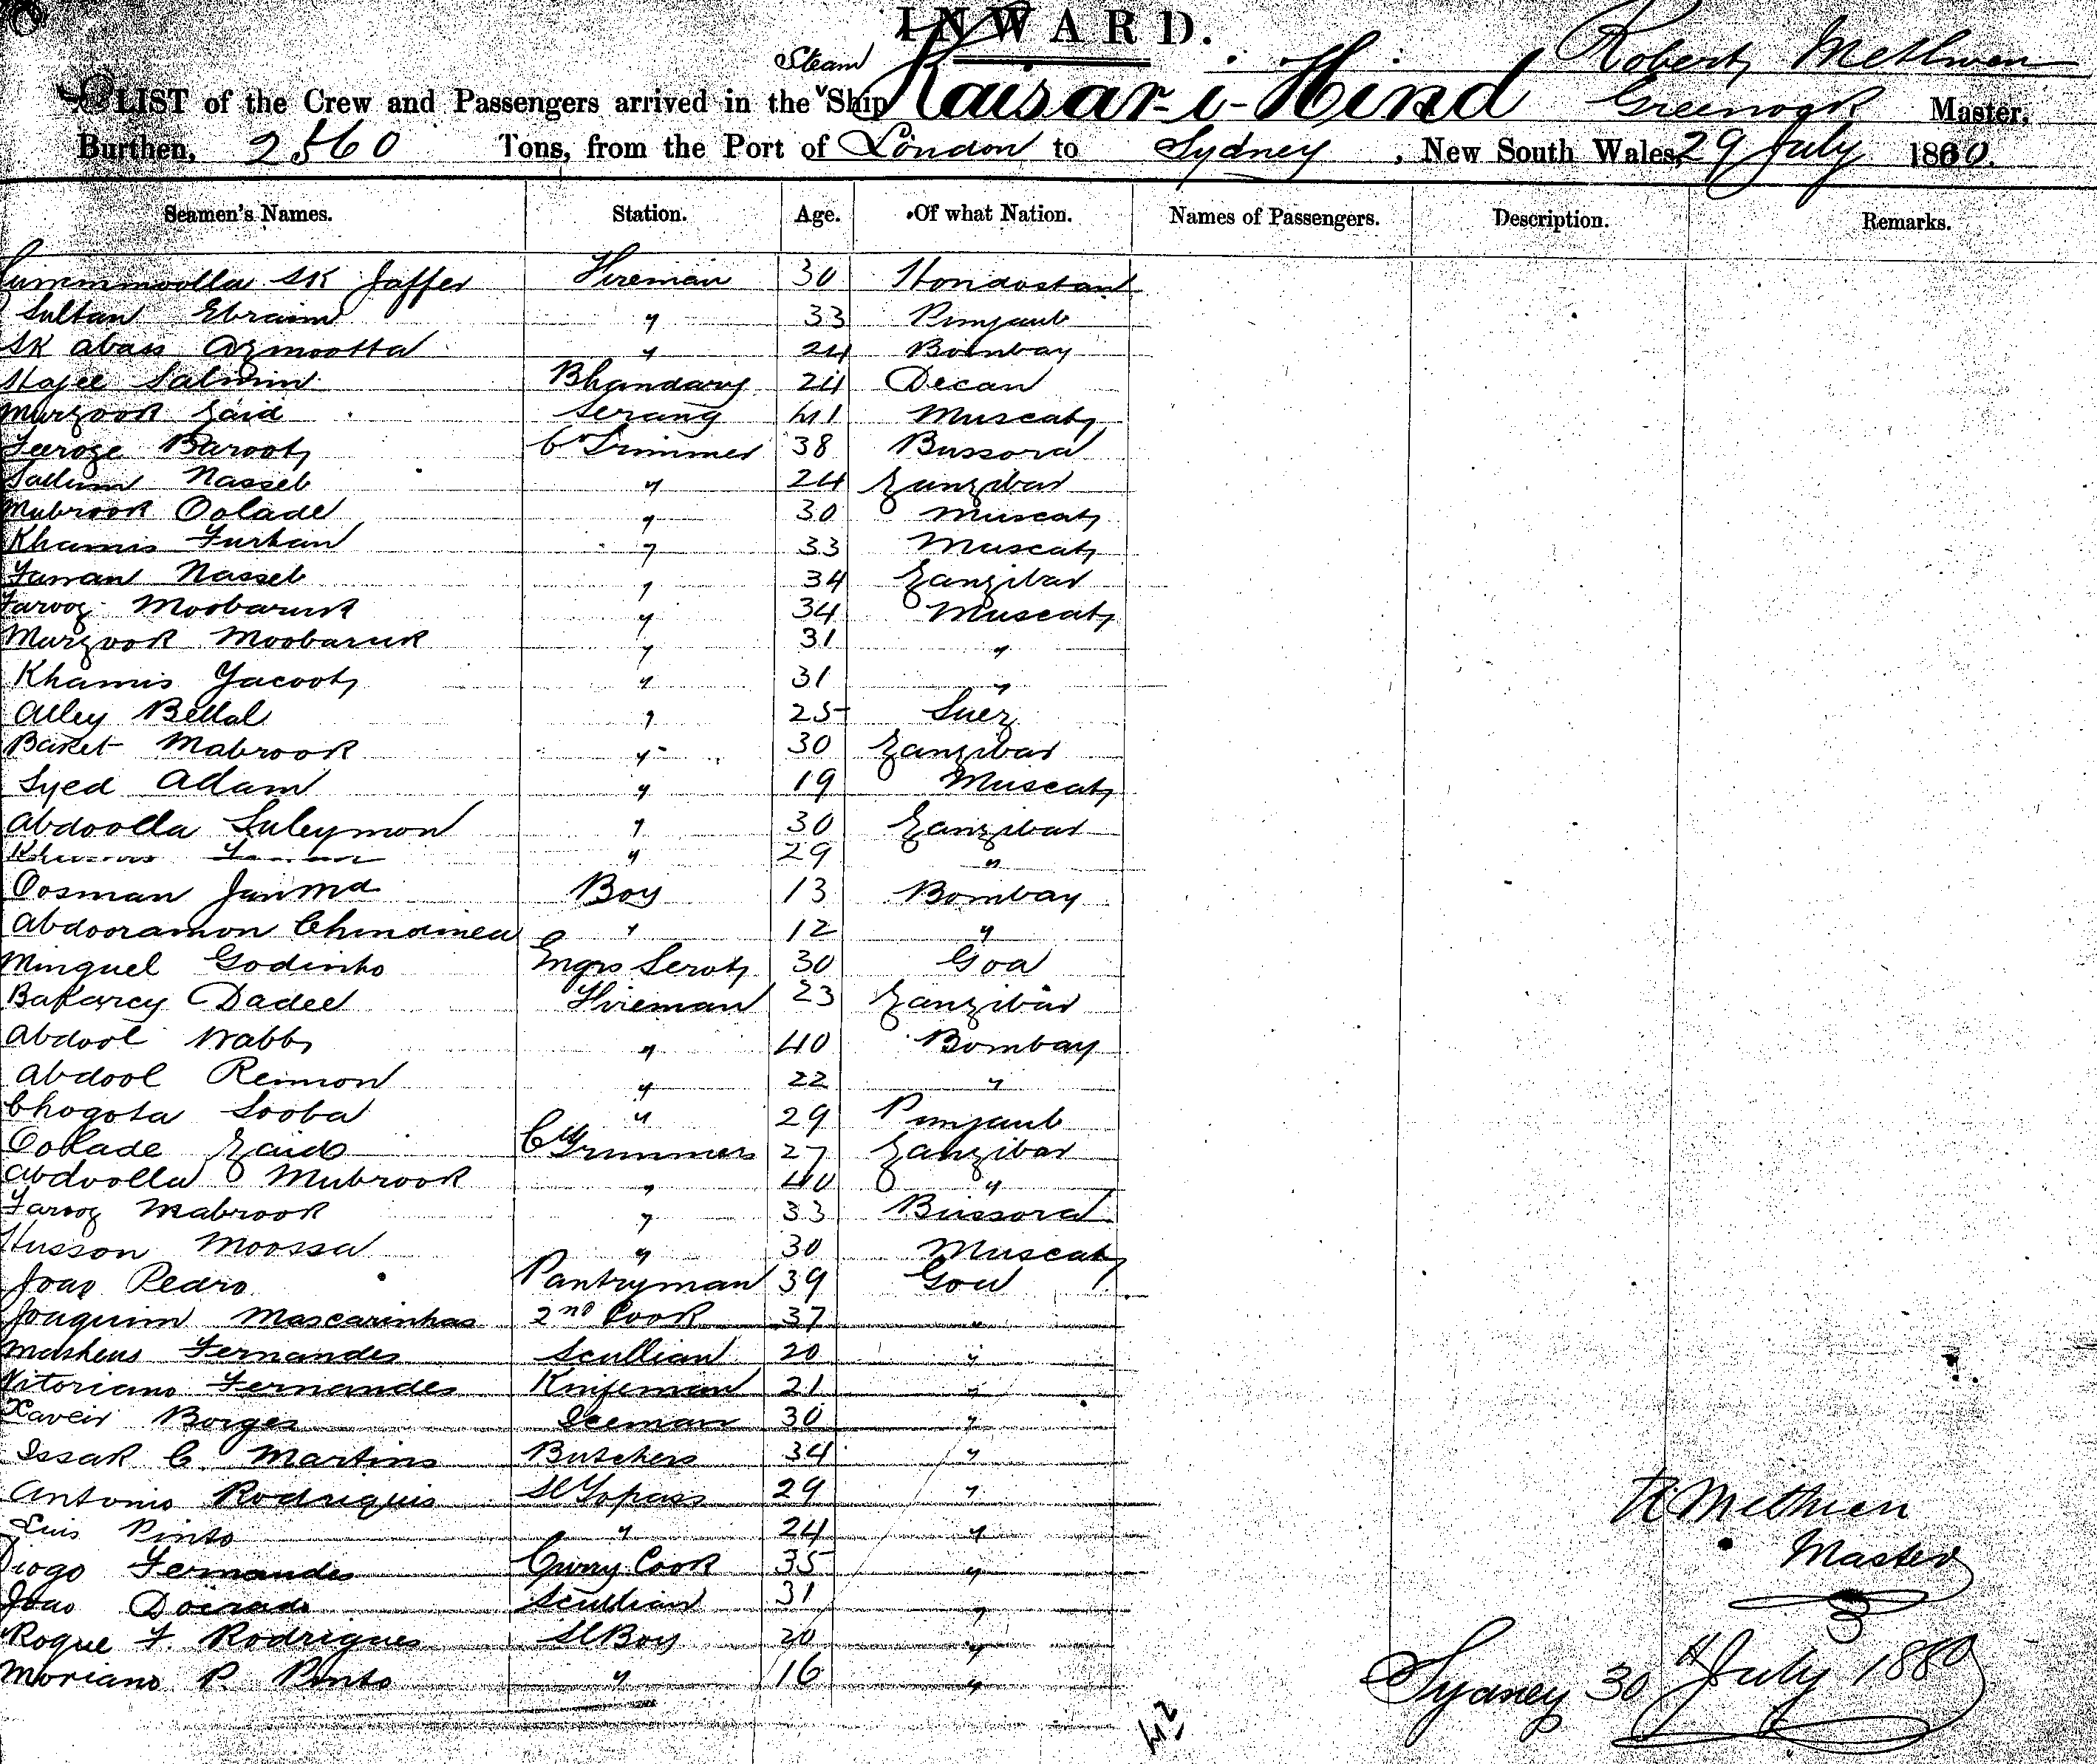 INWARD.
Robert Methven
Steam
LIST of the Crew and Passengers arrived in the Ship Kaisar-i-Hind Greenock Master,
Burthen, 2560 Tons, from the Port of London to Sydney, New South Wales, 29 July 1880.
Seamen's Names. Station. Age. Of what Nation. Names of Passengers. Description. Remarks.
SK Jaffer Fireman 30 Hondostan
Sultan Ebraim " 33 Punjaub
SK Abass " 24 Bombay
Hajee Salmin Bhandary 24 Decan
Murzook Zaid Serang 41 Muscat
Feeroze Baroot Cl Trimmer 38 Bussora
Nasseb " 24 Zanzibar
Mubrook Oolade " 30 Muscat
Khamis Furhan " 33 Muscat
Nasseb " 34 Zanzibar
Farooz Moobaruk " 34 Muscat
Murzook Moobaruk " 31 "
Khamis Yacoot " 31 "
Alley Bellal " 25 Suez
Baket Mabrook " 30 Zanzibar
Syed Adam " 19 Muscat
Abdoolla Suleymon " 30 Zanzibar
" 29 "
Oosman Jan Md Boy 13 Bombay
Abdooramon " 12 "
Minguel Godinho Engrs Servt 30 Goa
Bakarcy Dadee Fireman 23 Zanzibar
Abdool " 40 Bombay
Abdool Remon " 22 "
Chogota Sooba " 29 Punjaub
Oolade Zaid Cl Trimmers 27 Zanzibar
Abdoolla Mubrook " 40 "
Farooz Mabrook " 33 Bussora
Husson Moossa " 30 Muscat
Joao Pedro Pantryman 39 Goa
Joaquim Mascarinhas 2nd Cook 37 "
Matheus Fernandes Scullian 20 "
Vitoriano Fernandes Knifeman 21 "
Xaveir Borges Iceman 30 "
Issak C. Martins Butchers 34 "
Antonio Rodriguis Sl Topass 29 "
Luis Pinto " 24 "
Diogo Fernandes Curry Cook 35 "
Joao Scullian 31 "
Roque F. Rodrigues Sl Boy 20 "
Moriano P. Pinto " 16 "
R Methven
Master
Sydney 30th July 1880
42